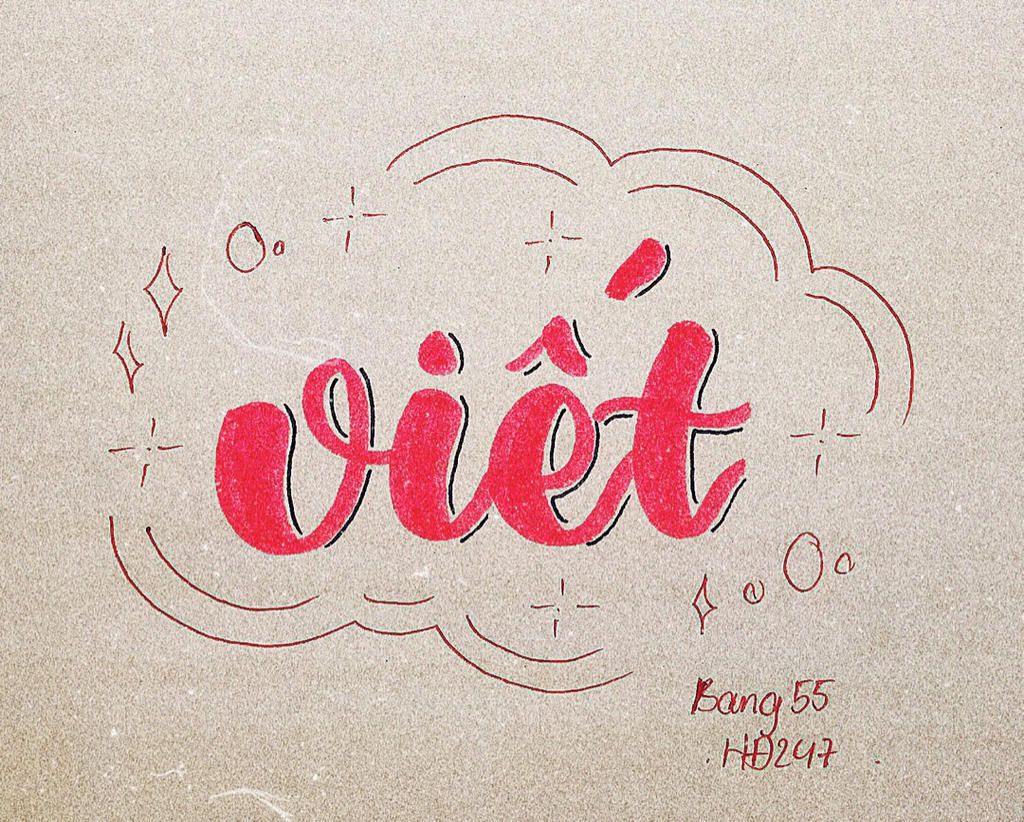 viết
Bang 55
HĐ247